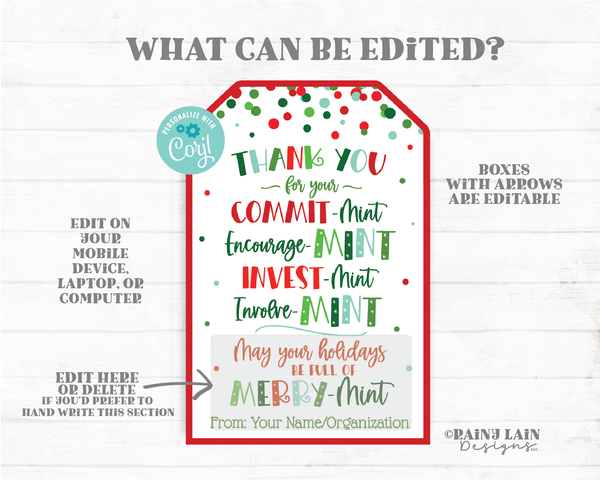 WHAT CAN BE EDITED?
PERSONALIZE WITH
Corjl
THANK YOU
for your
COMMIT-Mint
Encourage-MINT
INVEST-Mint
Involve-MINT
May your holidays
BE FULL OF
MERRY-Mint
From: Your Name/Organization
BOXES
WITH ARROWS
ARE EDITABLE
EDIT ON
YOUR
MOBILE
DEVICE,
LAPTOP, OR
COMPUTER
EDIT HERE
OR DELETE
IF YOU'D PREFER TO
HAND WRITE THIS SECTION
©RAINY LAIN
Designs LLC